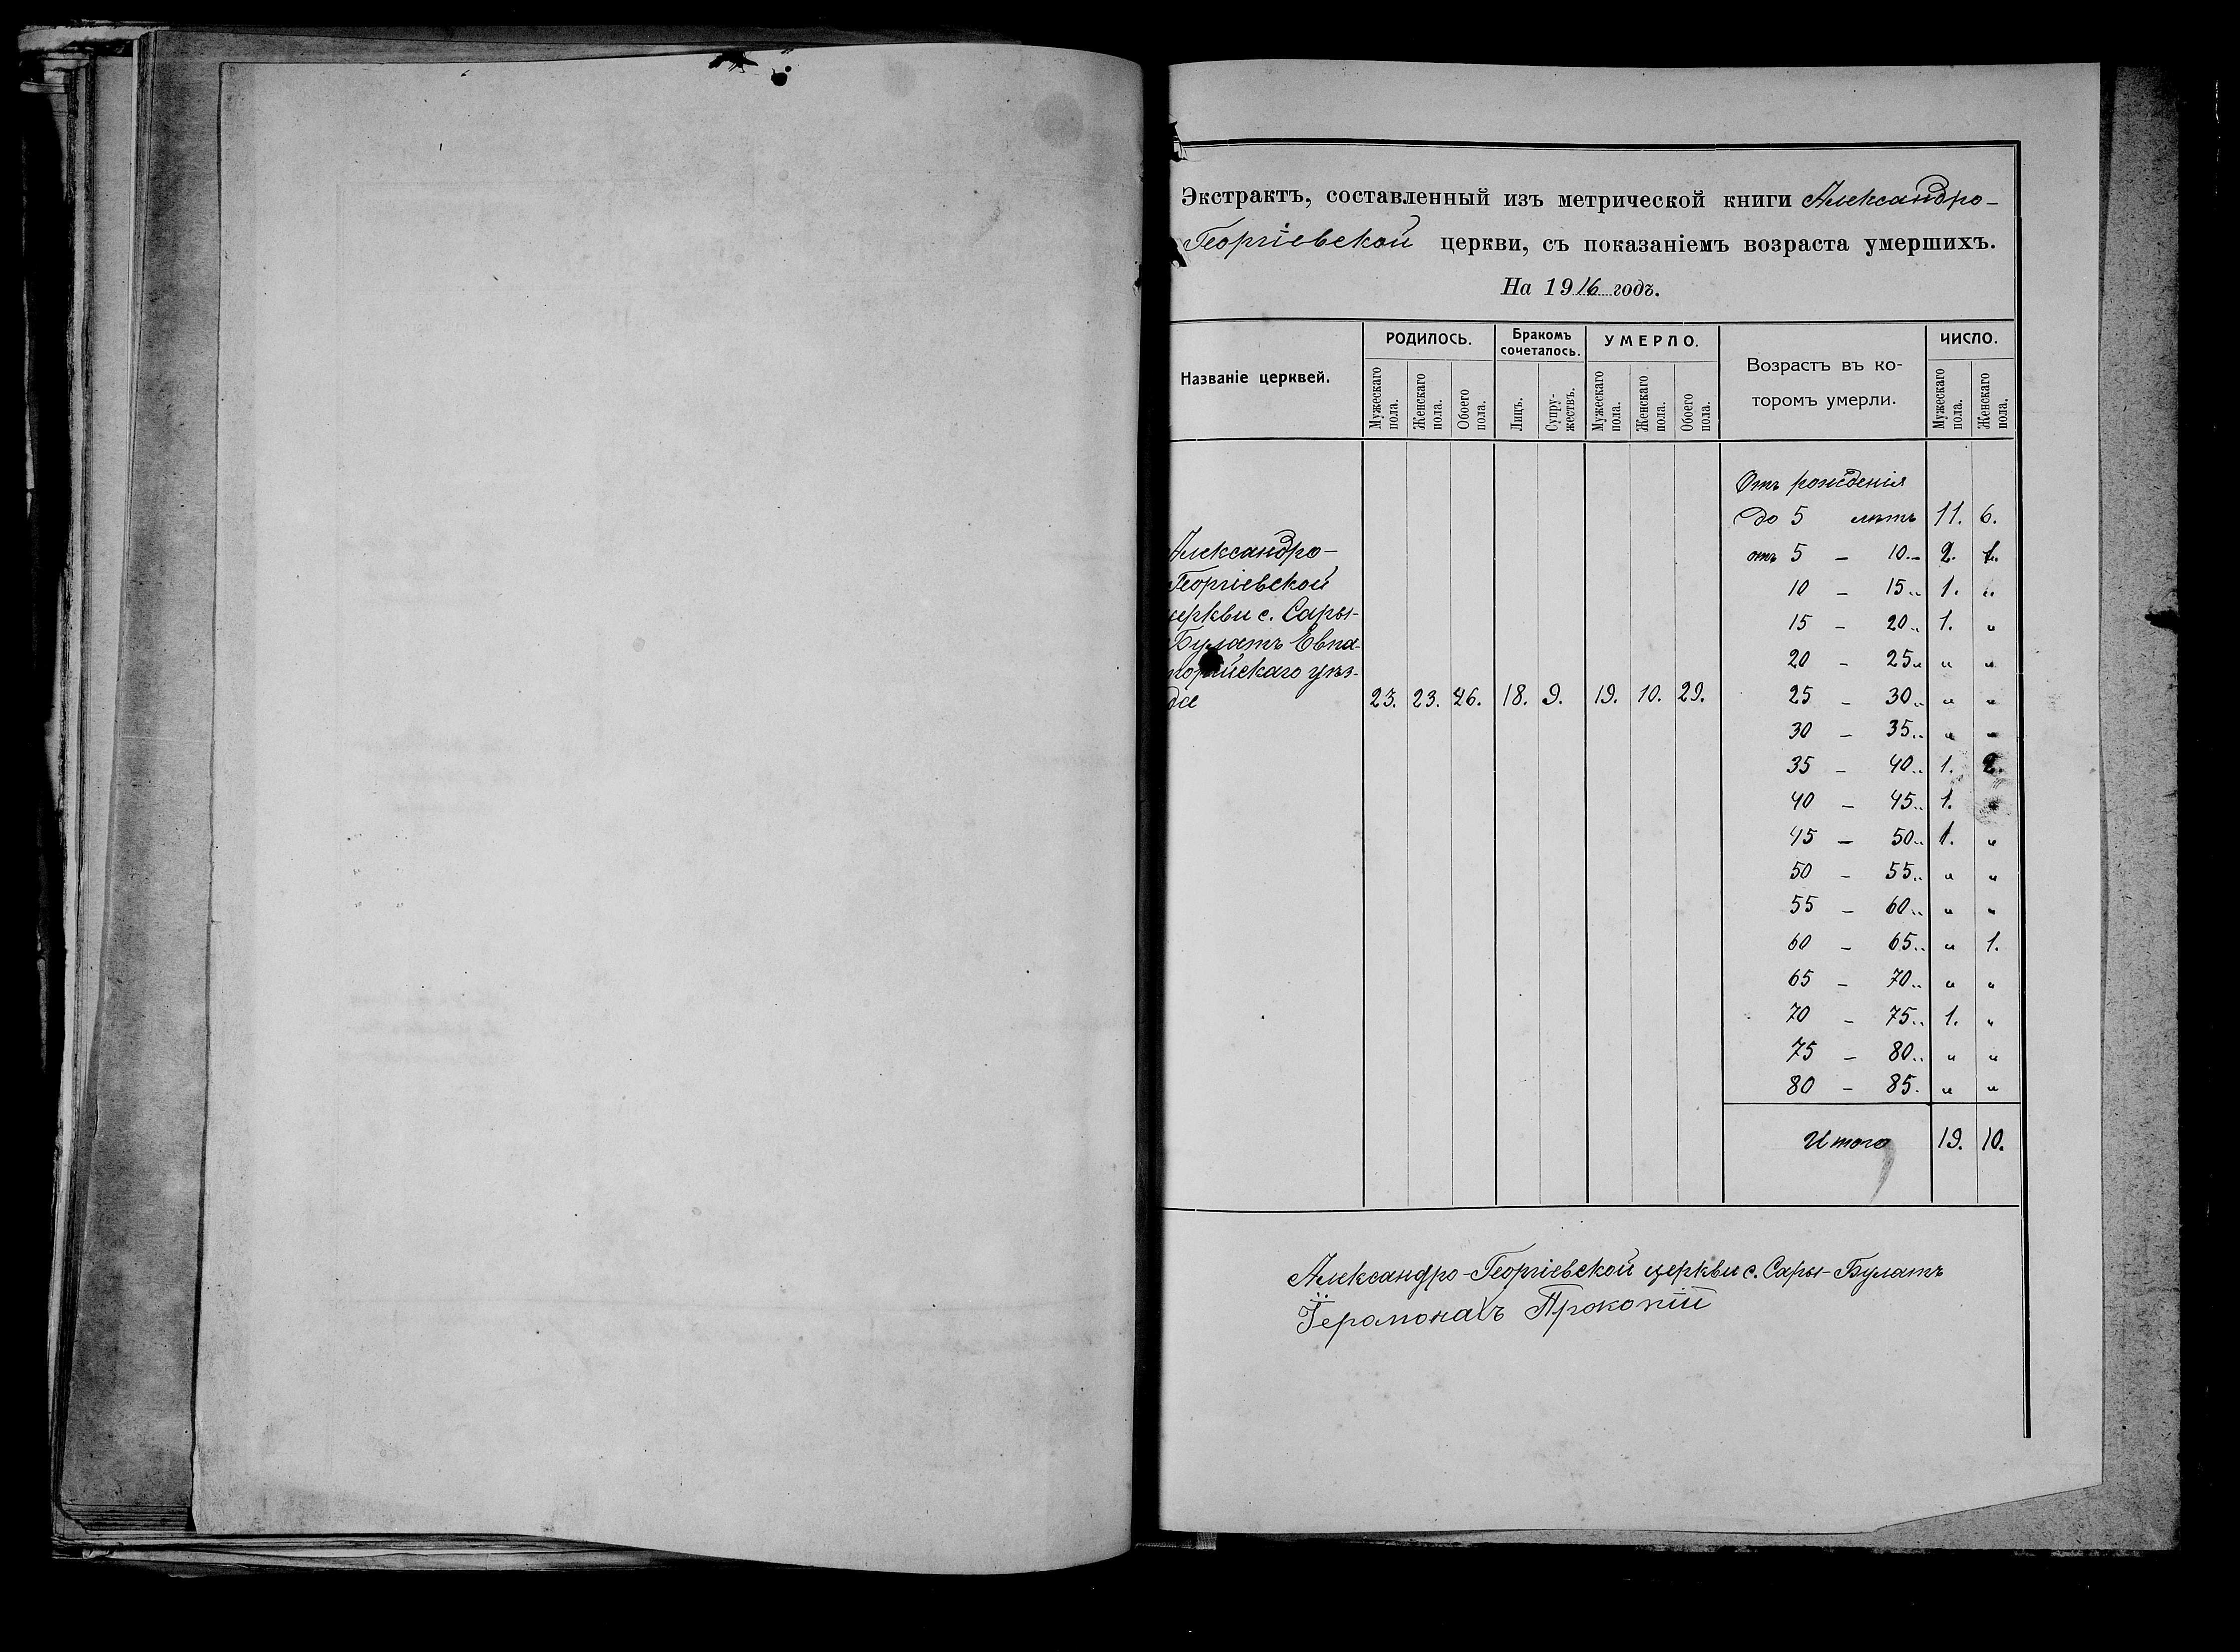 Экстрактъ, составленный изъ метрической книги Александро-
Георгіевской церкви, съ показаніемъ возраста умершихъ.
На 1916 годъ.
Названіе церквей.
РОДИЛОСЬ.
Мужескаго пола.
Женскаго пола.
Обоего пола.
Бракомъ сочеталось.
Лицъ.
Супружествъ.
УМЕРЛО.
Мужескаго пола.
Женскаго пола.
Обоего пола.
Возрастъ въ ко-
торомъ умерли.
ЧИСЛО.
Мужескаго пола.
Женскаго пола.
Александро-
Георгіевской
церкви с. Сары-
Булатъ Евпа-
торійскаго уѣз-
да 23. 23. 46. 18. 9. 19. 10. 29.
Отъ рожденія
до 5 лѣтъ 11. 6.
отъ 5 – 10 „ 2. 1.
10 – 15 „ 1. „
15 – 20 „ 1. „
20 – 25 „ „ „
25 – 30 „ „ „
30 – 35 „ „ „
35 – 40 „ 1. 2.
40 – 45 „ 1. „
45 – 50 „ 1. „
50 – 55 „ „ „
55 – 60 „ „ „
60 – 65 „ „ 1.
65 – 70 „ „ „
70 – 75 „ 1. „
75 – 80 „ „ „
80 – 85. „ „
Итого 19. 10.
Александро-Георгіевской церкви с. Сары-Булатъ
Іеромонахъ Прокопій